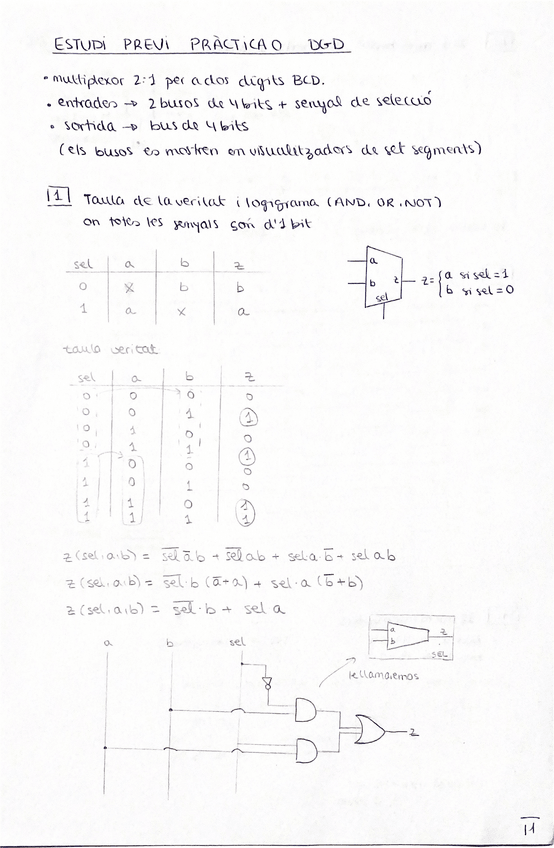 ESTUDI PREVI PRÀCTICA 0 DGD
• multiplexor 2:1 per a dos dígits BCD.
• entrades → 2 busos de 4 bits + senyal de selecció
• sortida → bus de 4 bits
(els busos es mostren en visualitzadors de set segments)
1 Taula de la veritat i logigrama (AND, OR, NOT)
on totes les senyals son d'1 bit
sel a b z
0 x b b
1 a x a
a
b z
sel
z = { a si sel = 1
b si sel = 0
taula veritat
sel a b z
0 0 0 0
0 0 1 1
0 1 0 0
0 1 1 1
1 0 0 0
1 0 1 0
1 1 0 1
1 1 1 1
z (sel, a, b) = s̅e̅l̅ a̅ b + s̅e̅l̅ a b + sel a · b̅ + sel a b
z (sel, a, b) = s̅e̅l̅ · b (a̅ + a) + sel · a (b̅ + b)
z (sel, a, b) = s̅e̅l̅ · b + sel a
a b sel
a z
b
sel
le llamaremos
z
11